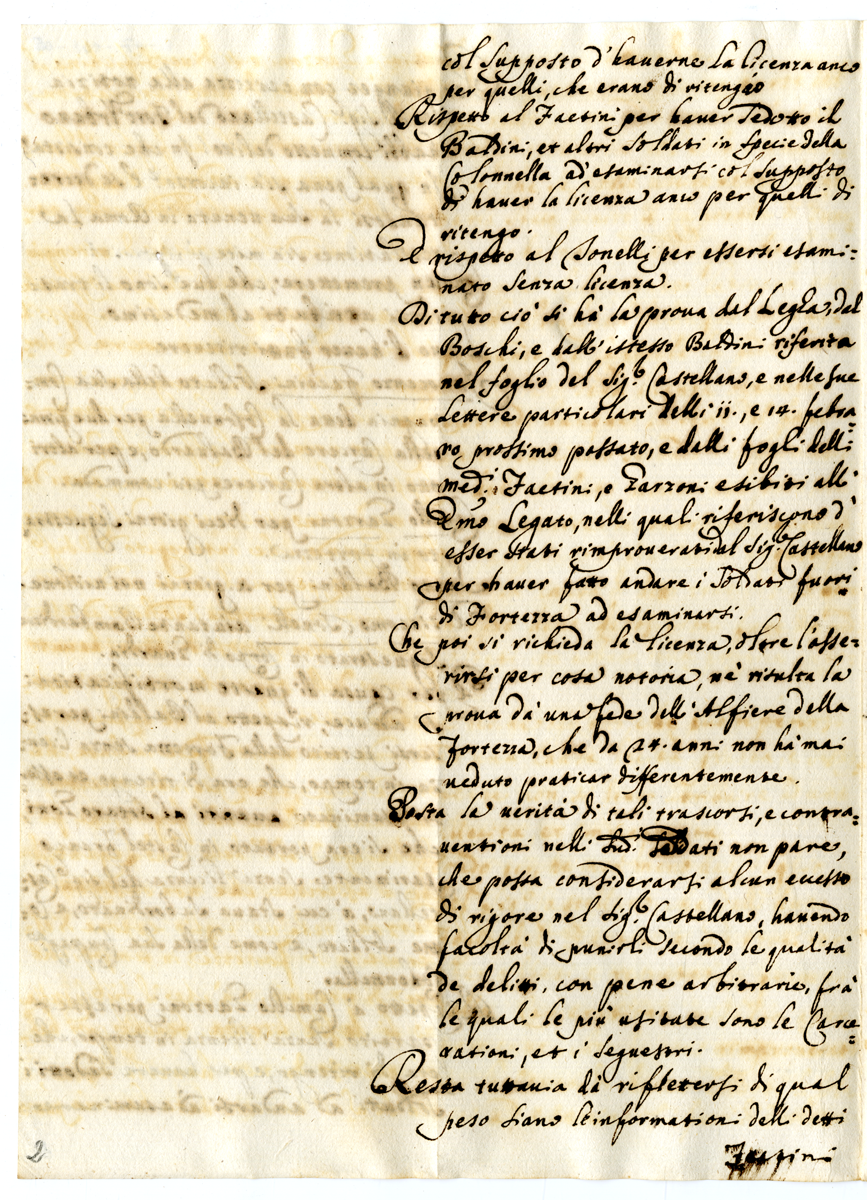 col supposto d'hauerne la licenza anco
per quelli, che erano di ritengo
Rispetto al Faetini per hauer sedotto il
Baldini, et altri soldati in specie della
Colonnella ad esaminarsi col supposto
di hauer la licenza anco per quelli di
ritengo.
E rispetto al Sonelli per essersi esami=
nato senza licenza.
Di tutto ciò si hà la proua dal Legla, dal
Boschi, e dall'istesso Baldini riferita
nel foglio del Sig.r Castellano, e nelle sue
lettere particolari delli 11., e 14. febra=
ro prossimo passato, e dalli fogli delli
med.i Faetini, e Zarzoni esibiti all'
Emo Legato, nelli quali riferiscono d'
esser stati rimprouerati dal Sig.r Castellano
per hauer fatto andare i soldati fuori
di Fortezza ad esaminarsi.
Che poi si richieda la licenza, oltre l'asse=
rirsi per cosa notoria, ne risulta la
proua da una fede dell'Alfiere della
Fortezza, che da 24. anni non hà mai
ueduto praticar differentemente.
Posta la uerità di tali trascorsi, e contra=
uentioni nelli sud.i Soldati non pare,
che possa considerarsi alcun eccesso
di rigore nel Sig.r Castellano, hauendo
facoltà di punirli secondo le qualità
de delitti, con pene arbitrarie, frà
le quali le più usitate sono le Carce=
rationi, et i sequestri.
Resta tuttauia dà riflettersi di qual
peso siano le informationi delli detti
2